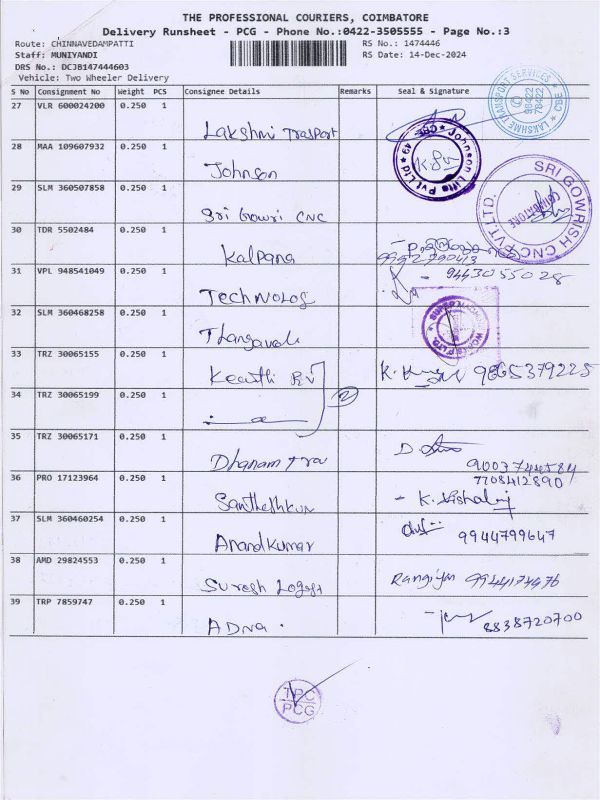 THE PROFESSIONAL COURIERS, COIMBATORE
Delivery Runsheet - PCG - Phone No.:0422-3505555 - Page No.:3
Route: CHINNAVEDAMPATTI RS No.: 1474446
Staff: MUNIYANDI RS Date: 14-Dec-2024
DRS No.: DCJB147444603
Vehicle: Two Wheeler Delivery
S No Consignment No Weight PCS Consignee Details Remarks Seal & Signature
27 VLR 600024200 0.250 1
Lakshmi Trasport
LAKSHME TRANSPORT SERVICES * CBE *
98422
78422
28 MAA 109607932 0.250 1
Johnson
Johnson Lifts Pvt Ltd * CBE 49 *
29 SLM 360507858 0.250 1
Sri Gowri CNC
SRI GOWRISH CNC PVT LTD.
COIMBATORE
30 TDR 5502484 0.250 1
Kalpana
31 VPL 948541049 0.250 1
Technolog 9443055028
32 SLM 360468258 0.250 1
Thangavel
33 TRZ 30065155 0.250 1
Keerthi 9865379225
34 TRZ 30065199 0.250 1
2
35 TRZ 30065171 0.250 1
Dhanam Tra 9003744584
36 PRO 17123964 0.250 1 7708412890
Santheshkun K. Vishaliy
37 SLM 360460254 0.250 1
Anandkumar 9944799647
38 AMD 29824553 0.250 1
Suresh Logest Rangiyan 9944174976
39 TRP 7859747 0.250 1
ADNA. 8838720700
TPC
PCG